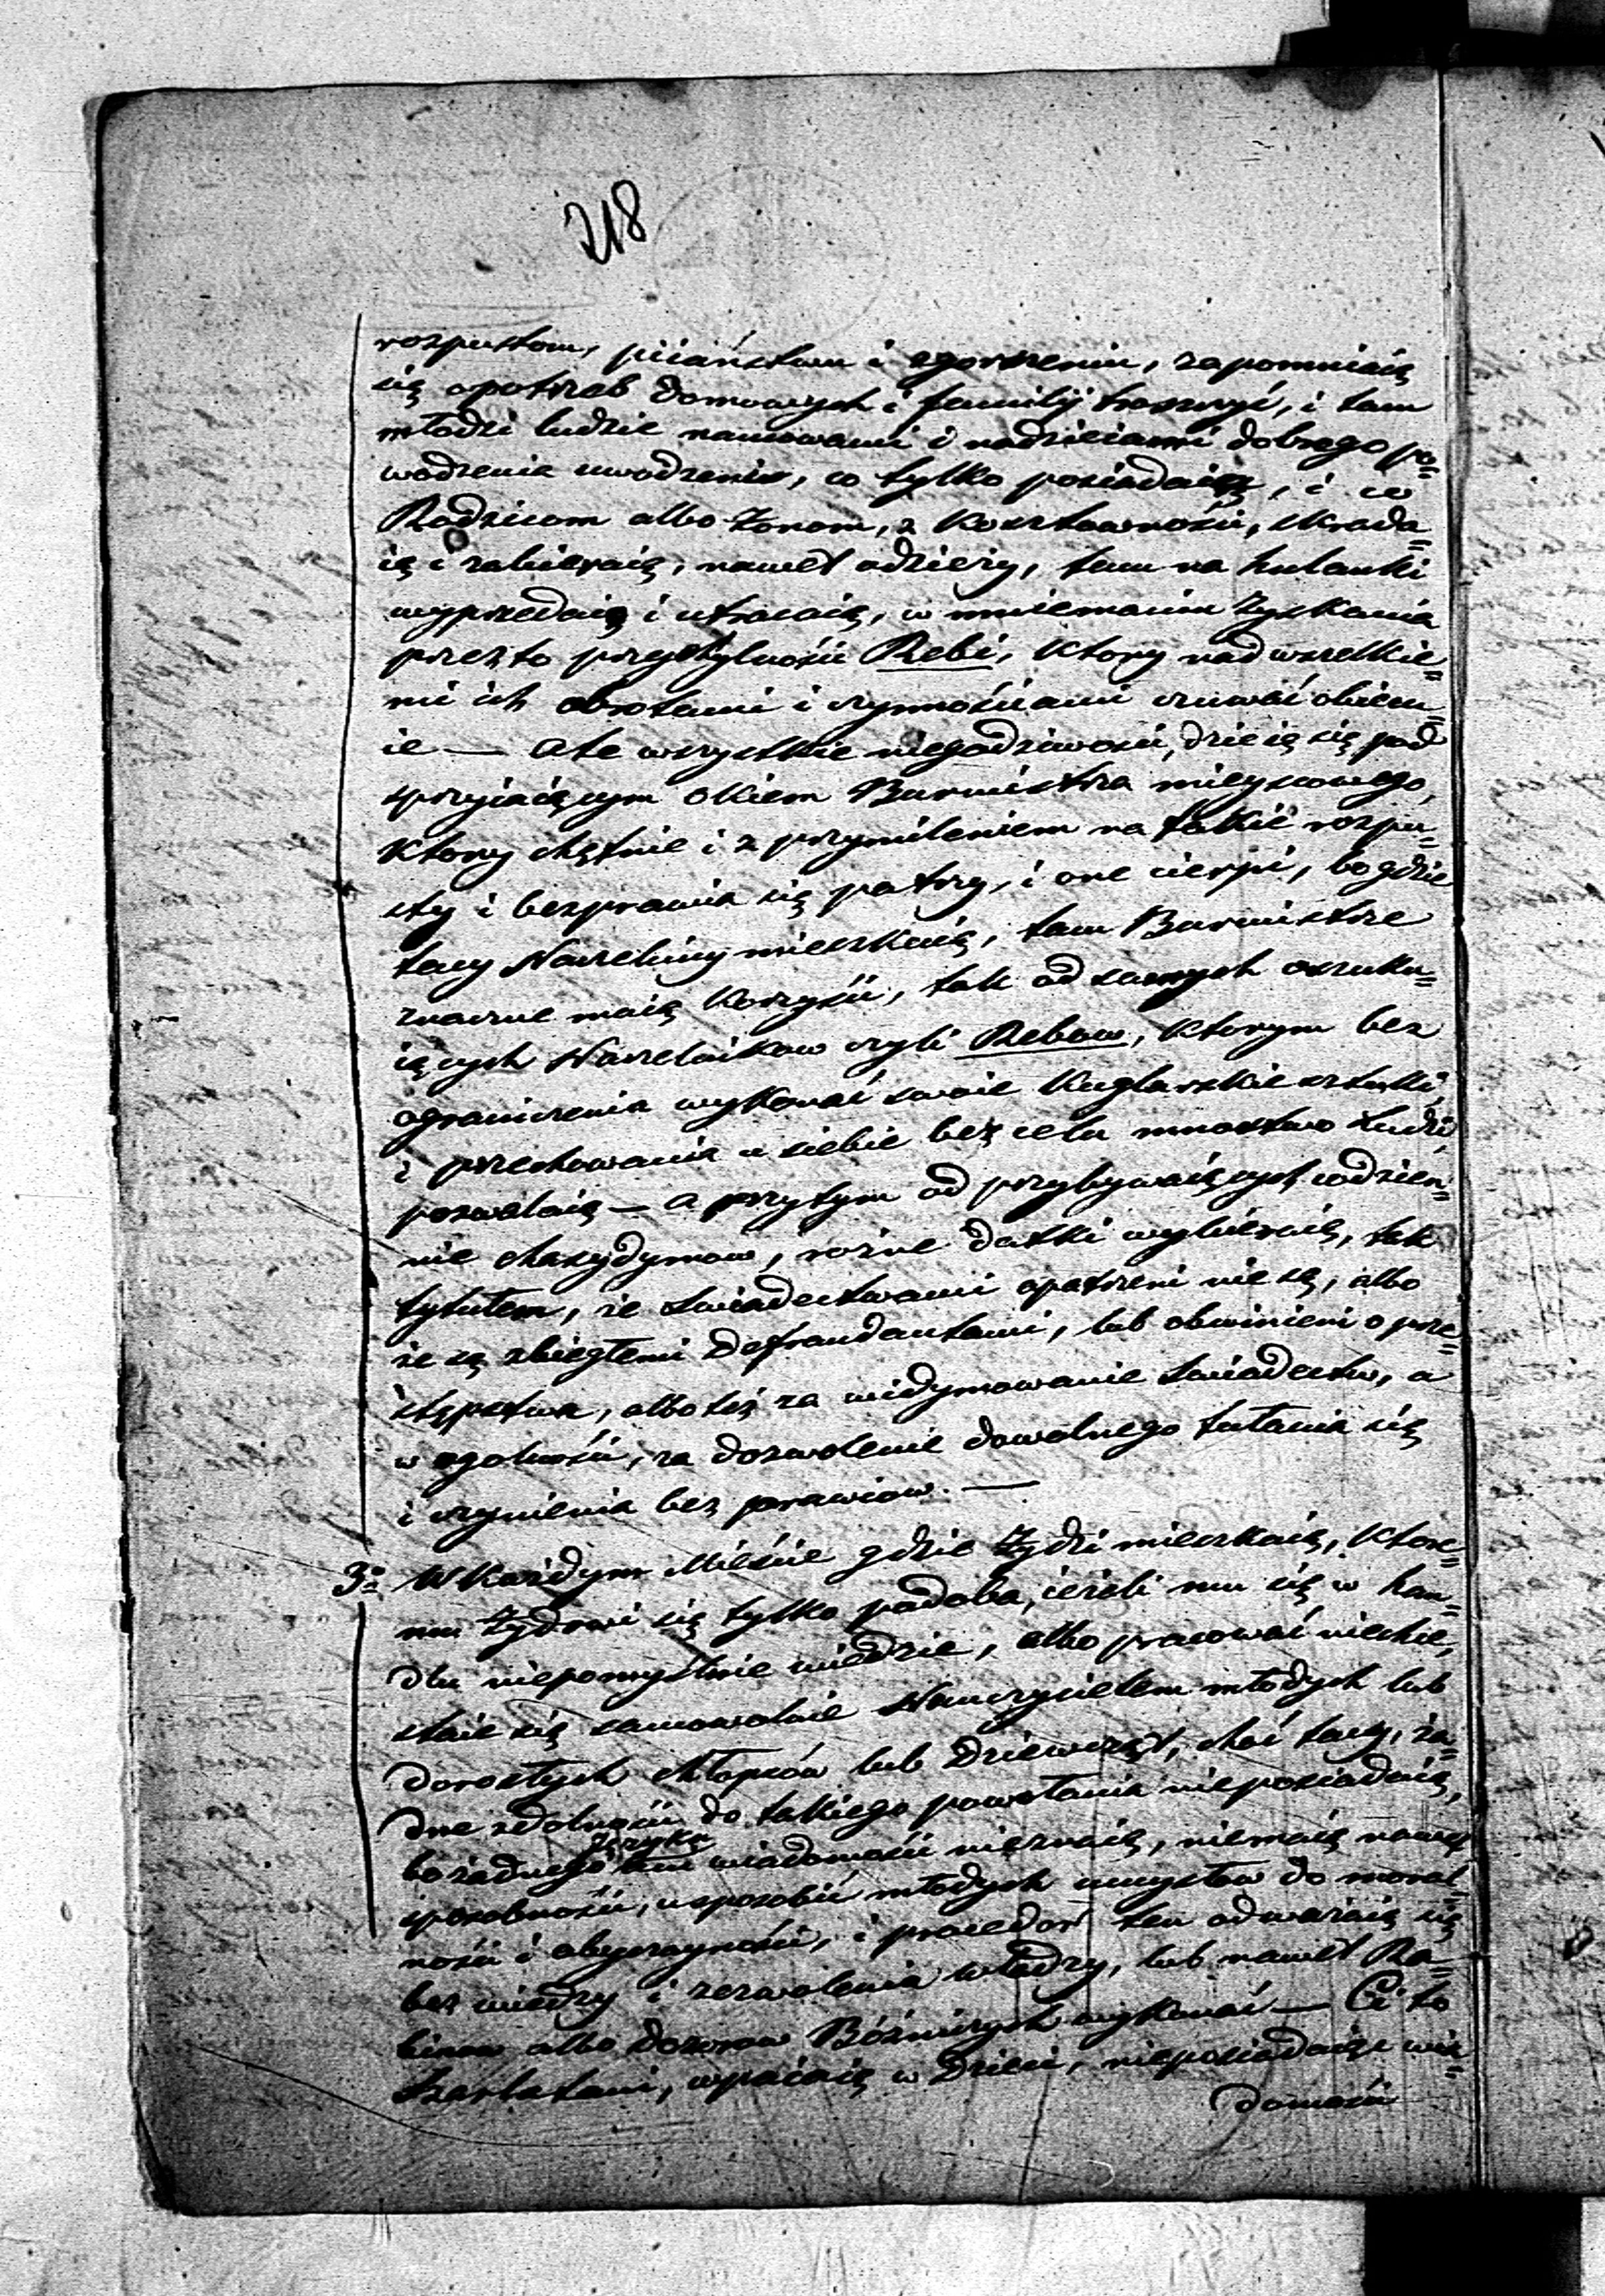 218
rozpustom, piiaństwu i zgorszeniu, zapomniaią
się o potrzeb domowych i familÿ troszczyć, i tam
młodzi ludzie namowami i nadzieiami dobrego po=
wodzenia uwodzeni, co tylko posiadaią, i co
Rodzicom albo Żonom, z Kosztowności, skrada=
ią i zabieraią, nawet odzieży, tam na hulanki
wyprzedaią i utracaią, w mniemaniu Zyskania
przez to przychylności Rebi, Ktory nad wszelkie=
mi ich obrotami i czynnościami czuwać obiecu=
ie — A te wszystkie niegodziwości, dzieią się pod
sprzyiaiącym Okiem Burmistrza mieyscowego,
Ktory chętnie i z przymileniem na takie rozpu=
sty i bezprawia się patrzy, i one cierpi, bo gdzie
tacy Naczelnicy mieszkaią, tam Burmistrze
znaczne maią Korzyści, tak od samych oszuku=
iących Naczelnikow czyli Rebow, Ktorym bez
ograniczenia wykonać swoie Kuglarskie sztuki,
i przechowania u siebie bez celu mnostwo Ludzi
pozwalaią — a przytym od przybywaiących codzien=
nie chasydymow, rożne datki wybieraią, tak
tytułem, że świadectwami opatrzeni nie są, albo
że są zbiegłemi Defraudantami, lub obwinieni o prze=
stępstwa, albo też za widymowanie świadectw, a
w ogolności, za dozwolenie dowolnego tułania się
i czynienia bez prawiow. —
3o W Każdym Mieście gdzie Żydzi mieszkaią, Ktore=
mu Żydowi się tylko podoba, ieżeli mu się w han=
dlu niepomyślnie wiedzie, albo pracować niechce,
staie się samowolnie Nauczycielem młodych lub
dorosłych chłopców lub Dziewcząt, choć tacy, ża=
dne zdolności do takiego powołania nieposiadaią,
bo żadnego języka wiadomości nieznaią, niemaią nawet
sposobności, usposobić młodych umysłow do moral=
ności i obyczayności, i proceder ten odważaią się
bez wiedzy i zezwolenia władzy, lub nawet Ra=
binow albo dozorow Bóżniczych wykonać — Ci to
Szarlatani, wpaiaią w Dzieci, nieposiadaiąc wia=
domości